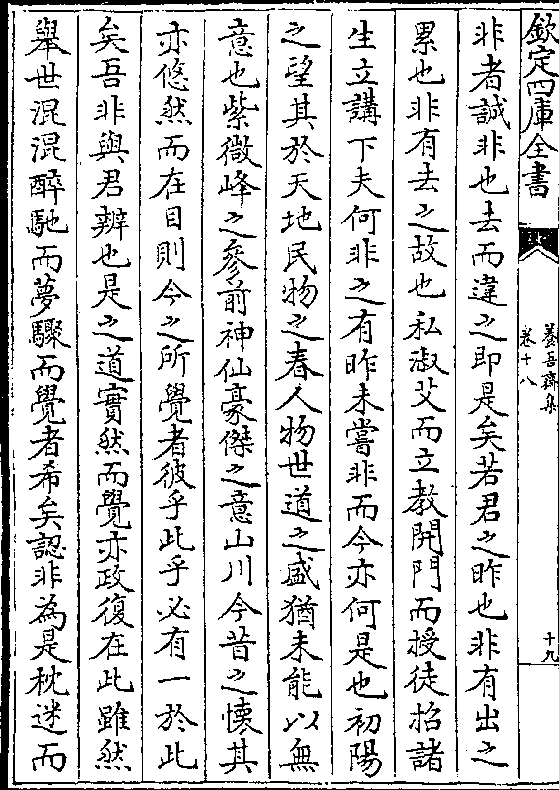 欽定四庫全書
養吾齋集
卷十八
十九
非者誠非也去而違之即是矣若君之昨也非有出之
累也非有去之故也私淑艾而立教開門而授徒招諸
生立講下夫何非之有昨未嘗非而今亦何是也初陽
之望其於天地民物之春人物世道之盛猶未能以無
意也紫微峰之參前神仙豪傑之意山川今昔之懐其
亦悠然而在目則今之所覺者彼乎此乎必有一於此
矣吾非與君辨也是之道實然而覺亦政復在此雖然
舉世混混醉馳而夢驟而覺者希矣認非為是枕迷而